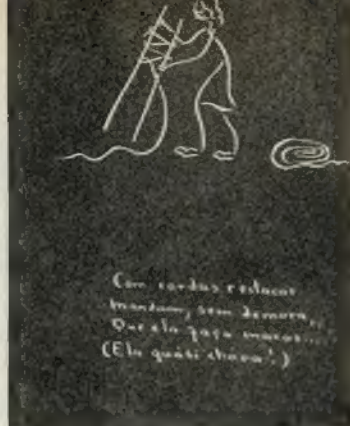 Com cordas e estacas
mandam, sem demora,
Que ela faça macas...
(Ela quási chora!)